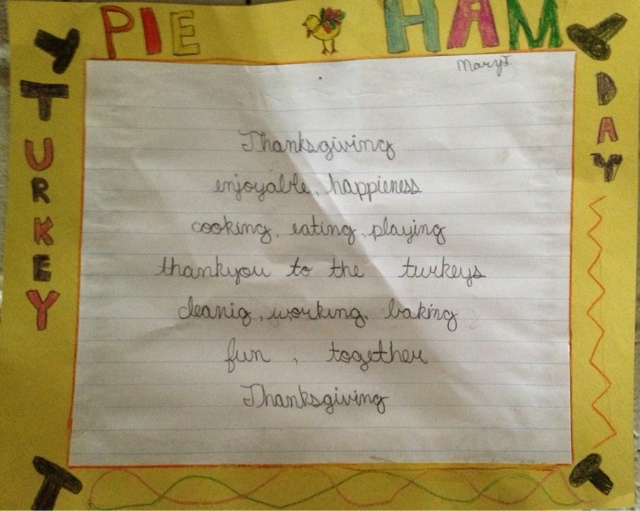 PIE HAM
TURKEY
DAY
Mary I
Thanksgiving
enjoyable, happieness
cooking, eating, playing
thankyou to the turkeys
cleanig, working, baking
fun, together
Thanksgiving